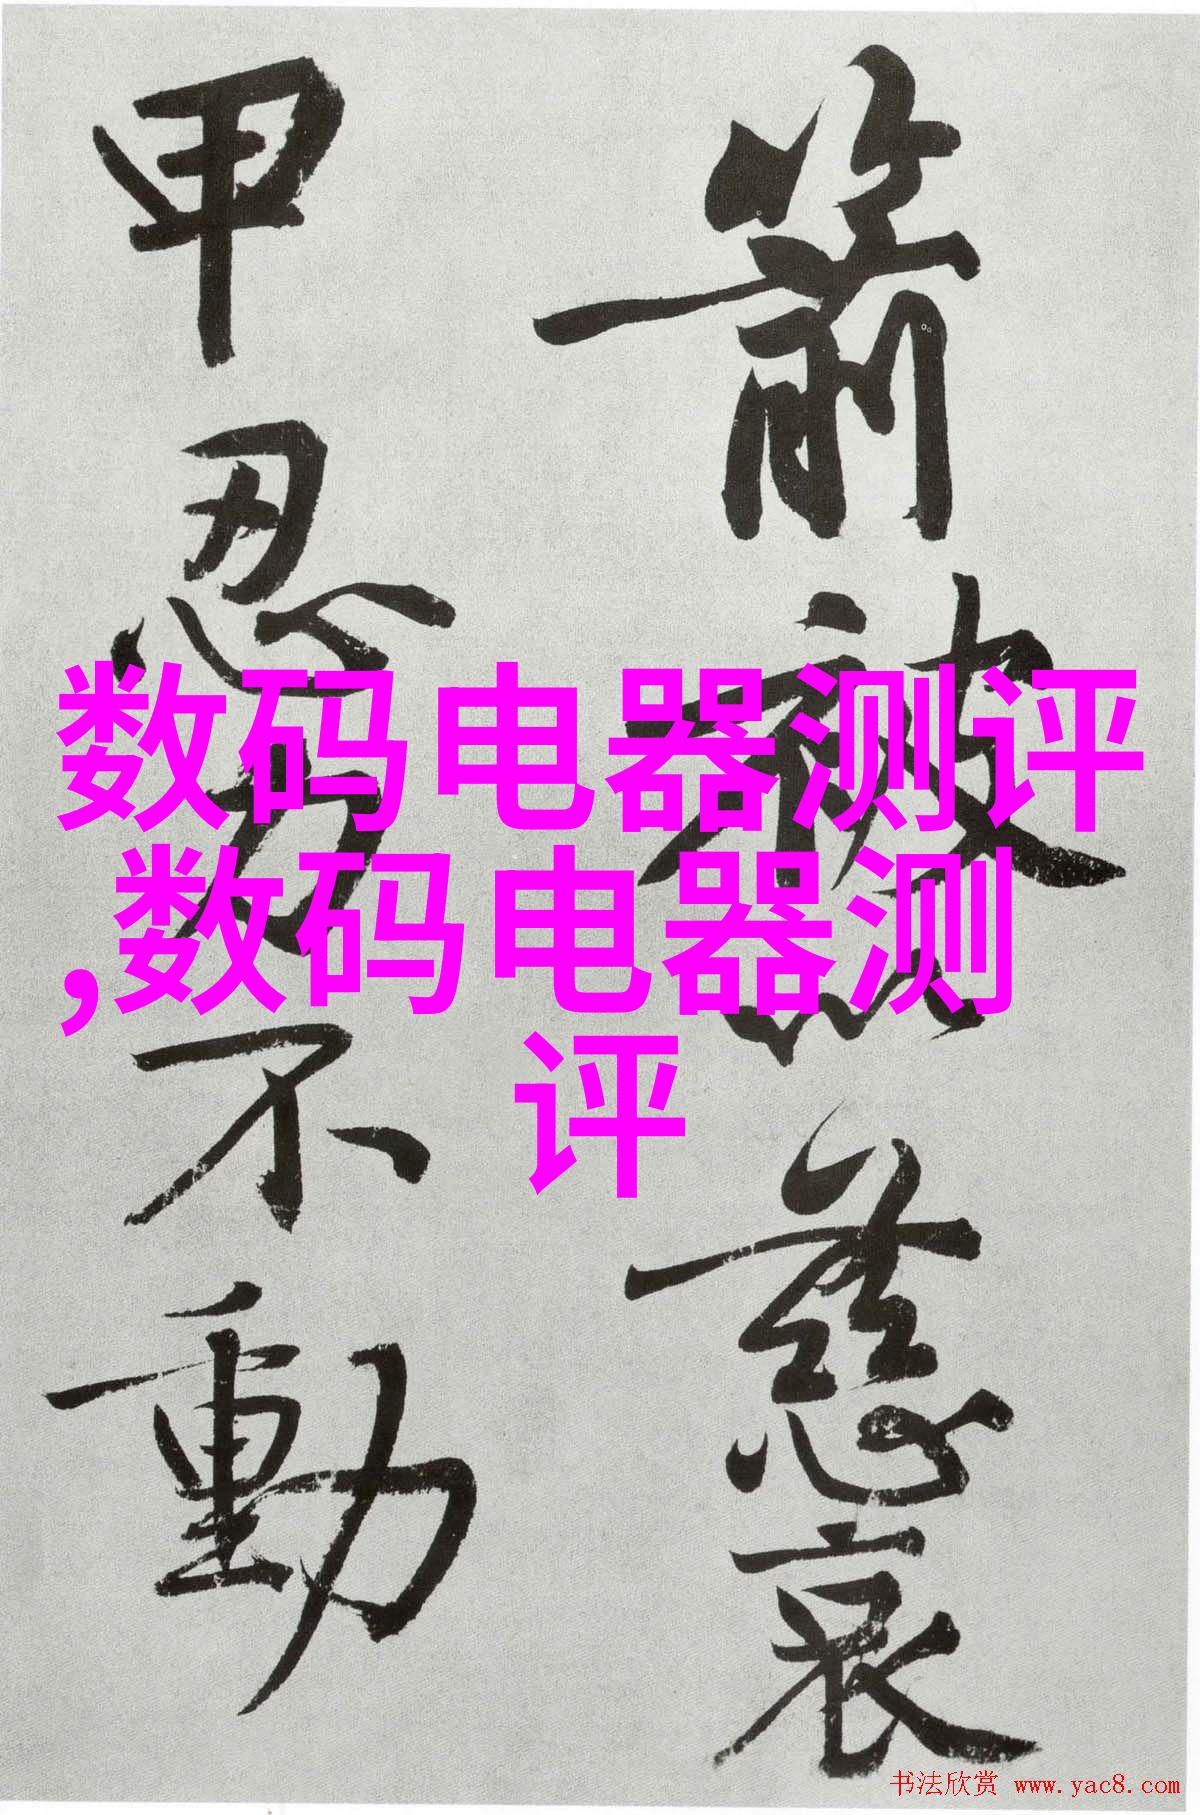 数码电器测评
,数码电器测
评
箭被以慈哀
甲忍力不動
书法欣赏 www.yac8.com